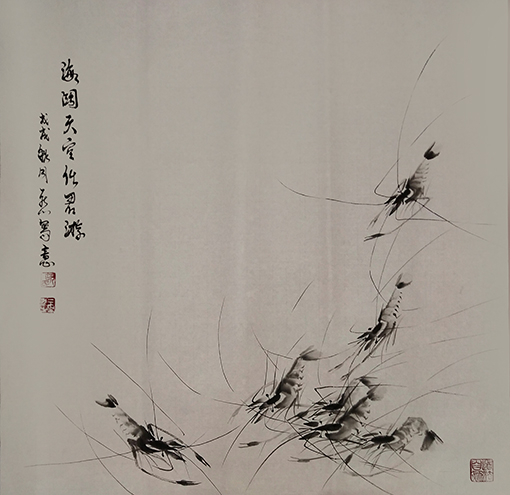 海阔天空任君游
戊戌秋月写意